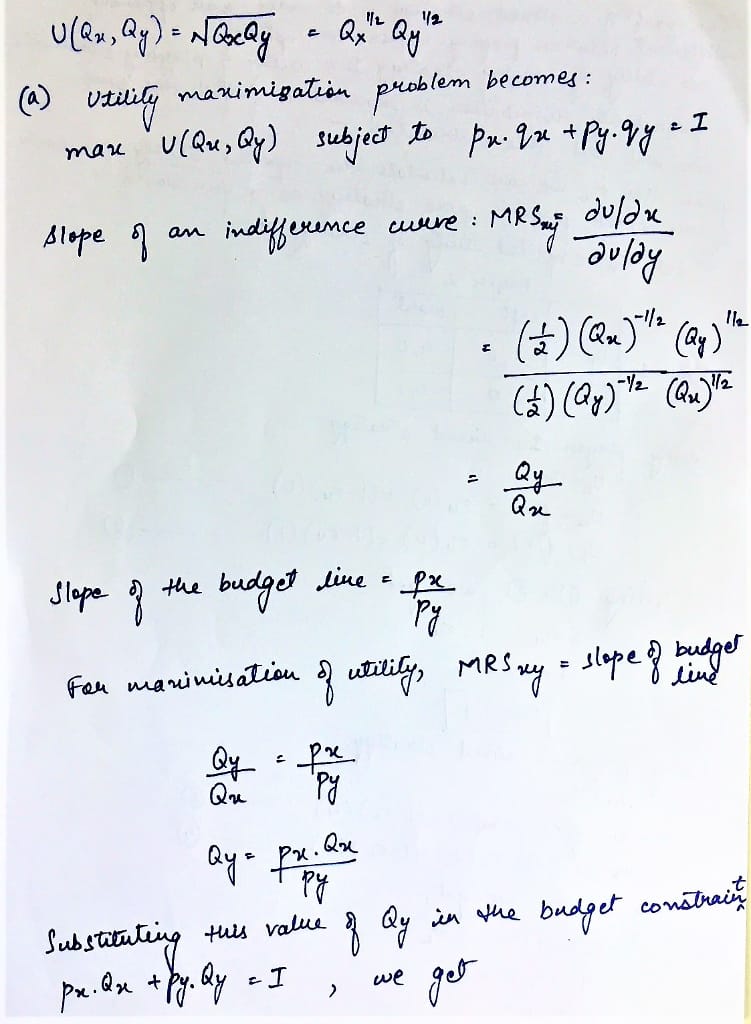 U(Qx, Qy) = √QxQy = Qx^1/2 Qy^1/2
(a) Utility maximization problem becomes:
max U(Qx, Qy) subject to px.qx + py.qy = I
Slope of an indifference curve : MRSxy = ∂u/∂x / ∂u/∂y
= (1/2) (Qx)^-1/2 (Qy)^1/2 / (1/2) (Qy)^-1/2 (Qx)^1/2
= Qy / Qx
Slope of the budget line = px / py
For maximisation of utility, MRSxy = slope of budget line
Qy / Qx = px / py
Qy = px.Qx / py
Substituting this value of Qy in the budget constraint
px.Qx + py.Qy = I , we get